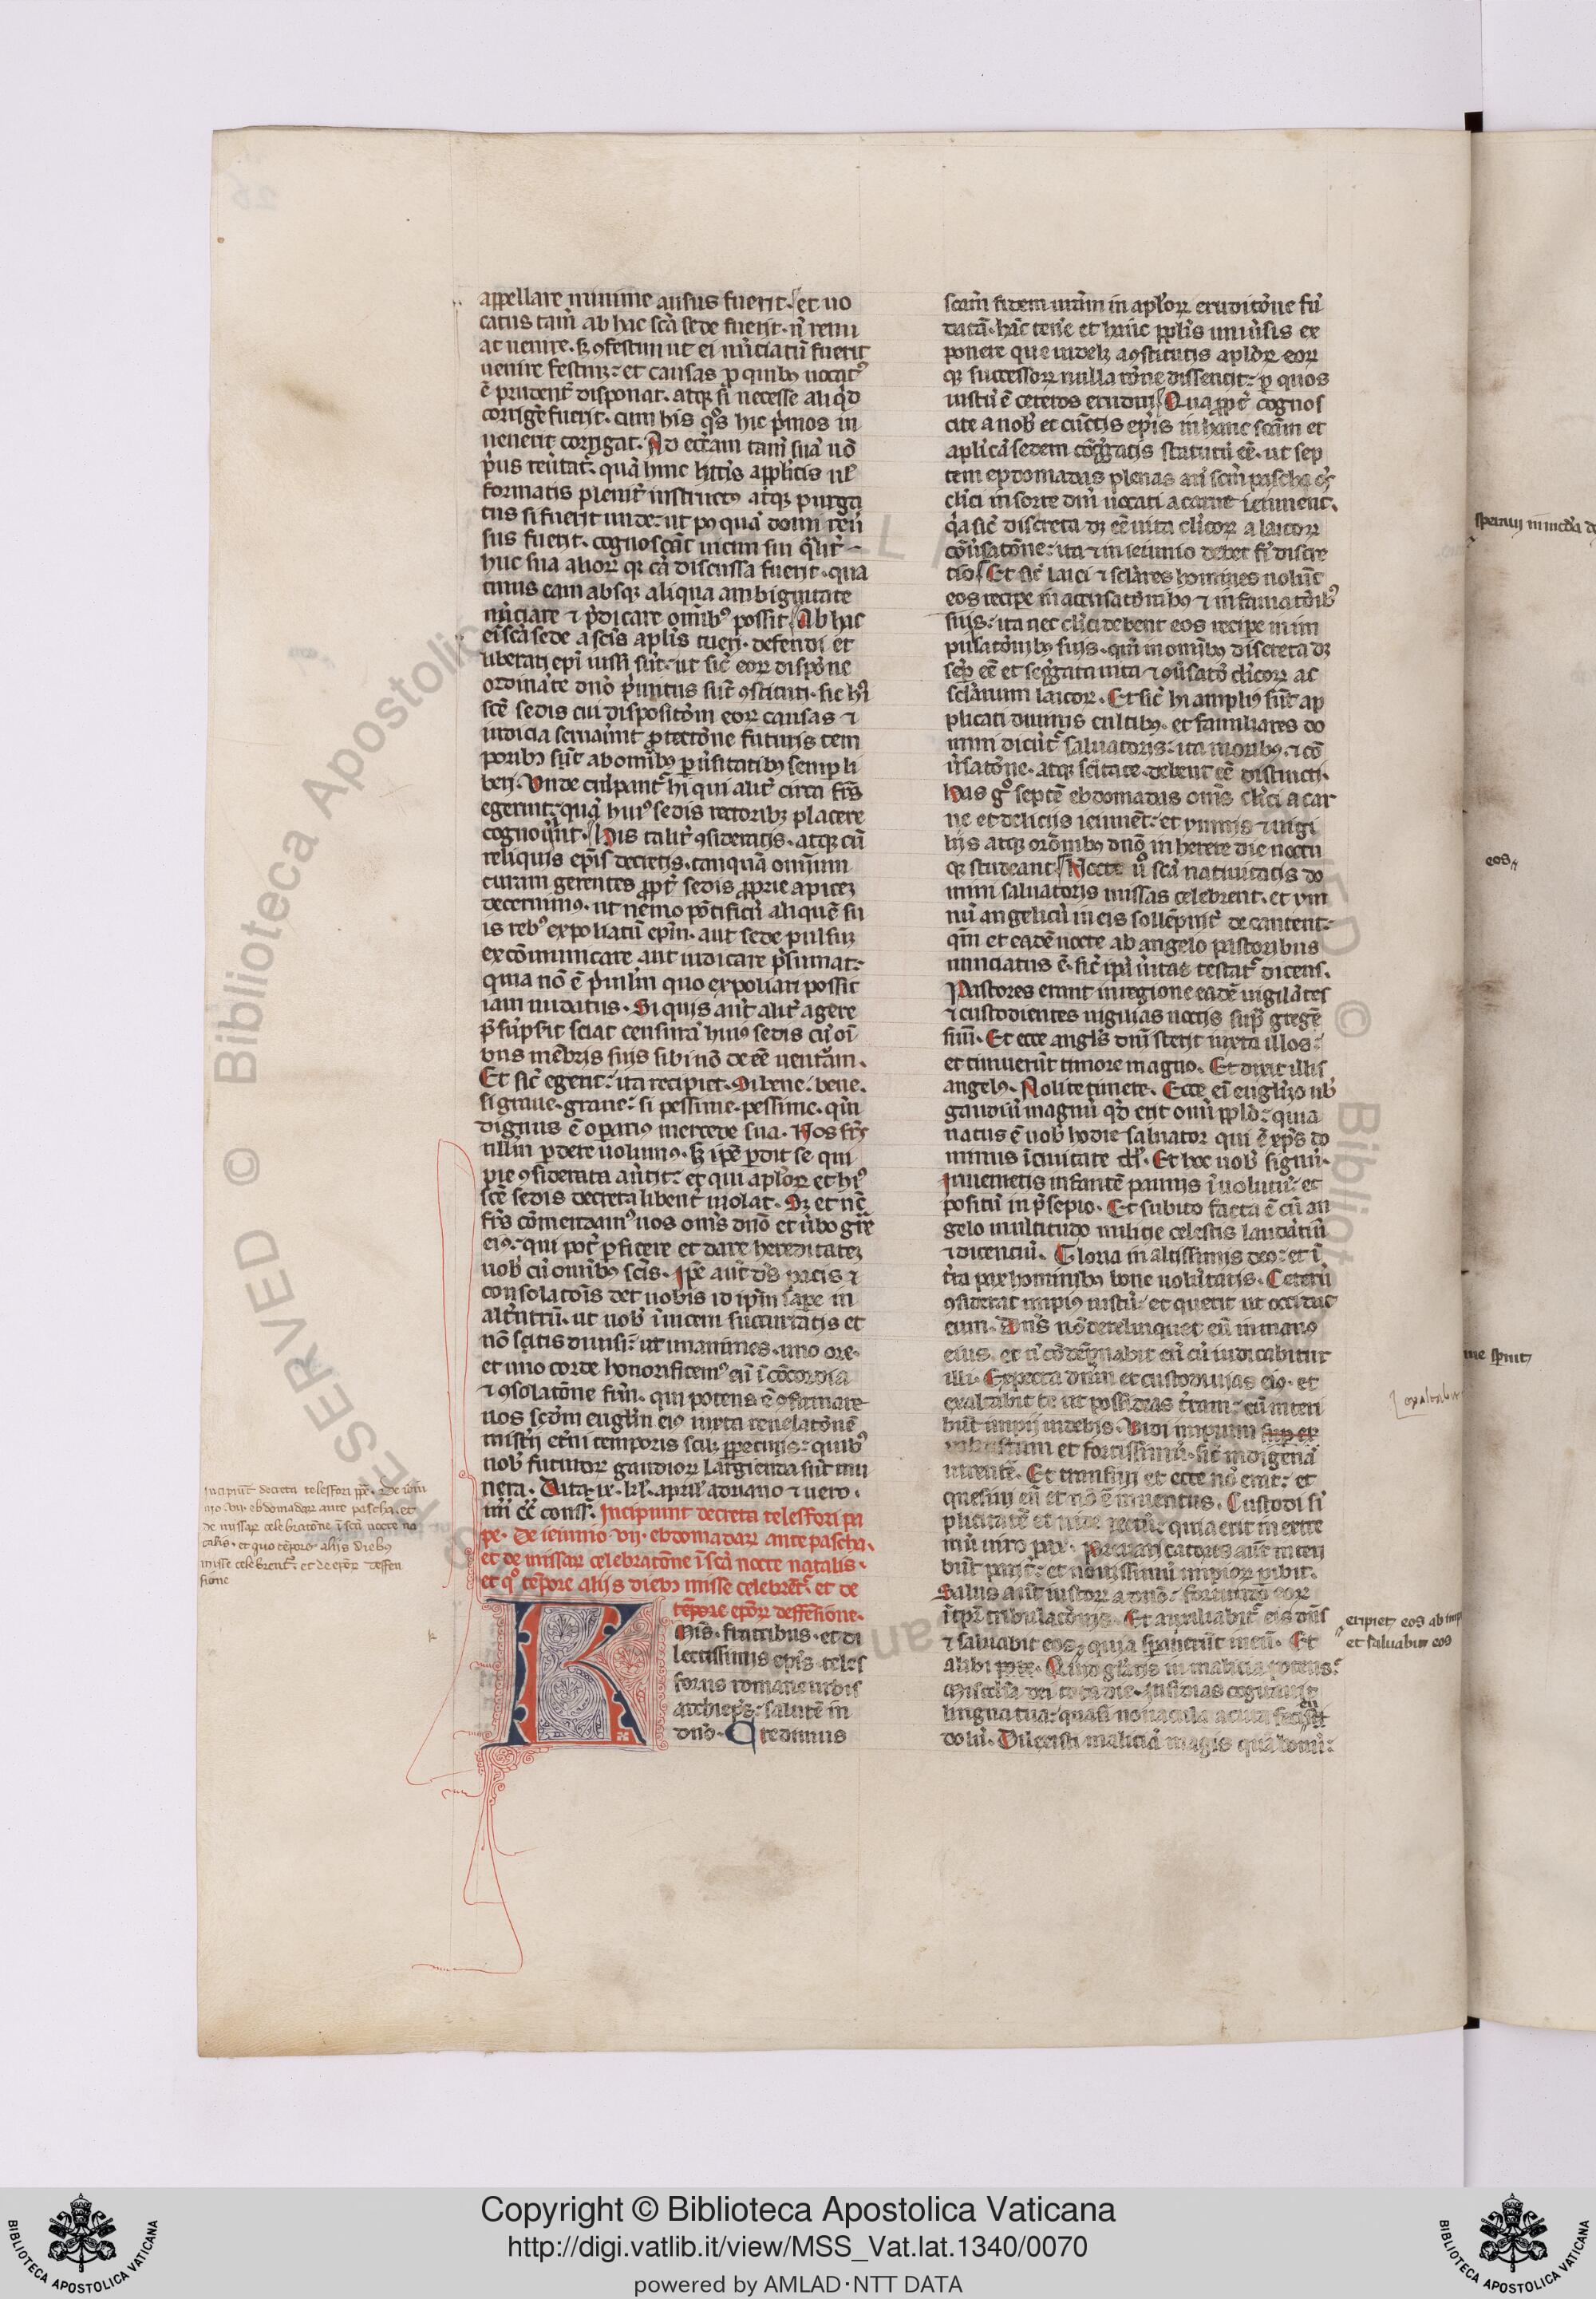 appellare minime ausus fuerit. et uo
catus tam̄ ab hac sc̄a sede fuerit. n̄ renu
at uenire. sꝫ ꝯfestim ut ei nūciatū fuerit
uenire festinꝫ. et causas ꝑ quibꝫ uocat᷒
ē prudent̄ disponat. atqꝫ si necesse aliqͥd
corrige᷒ fuerit. cum his qͦs hic pͥmos in
uenerit corrigat. Ad eccl̄iam tam̄ suā nō
pͥus reūtat᷒. quā hinc litt̄is applicis ul̓
formatis plenit᷒ instructꝰ atqꝫ purga
tus si fuerit unde. ut pꝰquā domi reū
sus fuerit. cognoscāt uicini sui qͣlit᷒
huc sua alioꝝ qꝫ cā discussa fuerit. qua
tinus eam absqꝫ aliqua ambiguitate
nūciare ⁊ pͥdicare om̄ibꝰ possit. Ab hac
ei᷒ sc̄a sede a sc̄is apl̄is tueri. defendi et
liberari ep̄i iussi sūt. ut sic᷒ eoꝝ dispōne
ordināte dn̄o pͥmitus sūt ꝯstituti. sic hꝰ
sc̄e sedis cui dispositōni eoꝝ causas ⁊
iudicia seruauit ꝓtectōne futuris tem
poribꝫ sūt ab om̄ibꝫ ꝑuͥsitatibꝫ semp li
beri. Vnde culpant᷒ hi qui alit᷒ circa frēs
egerint. quā huiꝰ sedis rectoribꝫ placere
cognouͥnt. His talit᷒ ꝯsideratis. atqꝫ cū
reliquis ep̄is decretis. tanquā omnium
curam gerentes ꝓpt᷒ sedis ꝓprie apicem
decernimꝰ. ut nemo pōtificū aliquē su
is rebꝰ expoliatū ep̄m. aut sede pulsuꝫ
excōmunicare aut iudicare pͥsumat.
quia nō ē pͥuilm̄ quo expoliari possit
iam nudatus. Si quis aut᷒ alit᷒ agere
pͥsūpsit sciat censurā huiꝰ sedis cū oī
bus mēbris suis sibi nō deēē uentͣm.
Et sic᷒ egerit. ita recipiet. Si bene. bene.
si graue. graue. si pessime. pessime. qm̄
dignus ē oꝑariꝰ mercede sua. Nos frēs
nllm̄ ꝑdere uolumꝰ. sꝫ ipē ꝑdit se qui
pie ꝯsiderata auͥtit. et qui apl̓oꝝ et hꝰ
sc̄e sedis decreta libent᷒ uiolat.
fr̄s cōmendamꝰ uos om̄s dn̄o et ūbo gr̄e
eiꝰ. qui pot᷒ ꝑficere et dare hereditatem
uob᷒ cū omībꝫ sc̄is. Ipē aut᷒ ds̄ pacis ⁊
consolatōis det uobis id ipm̄ sape in
alt᷒utrū. ut uob᷒ īuicem succuratis et
nō sitis diuisi. ut unanimes. uno ore.
et uno corde honorificemꝰ eū ī cōcordia
⁊ ꝯsolatōne sūi. qui potens ē ꝯfirmare
uos scd̄m euglm̄ eiꝰ iuxta reuelatōnē
mist᷒ij et᷒ni temporis ꝑpetuis. quibꝰ
nob᷒ futuroꝝ gaudioꝝ largienda sūt mu
nera. Data. ix. kl̓. april᷒ adriano ⁊ uero.
iiij cc̄ conss᷒. Incipiunt decreta telesfori pa
pe. De ieiunio vij. ebdomadaꝝ ante pascha.
et de missaꝝ celebratōne ī sc̄a nocte natalis.
et qͦ tēpore alijs diebꝫ misse celebrēt᷒. et de
tēpore ep̄oꝝ deffensione.
KMis. fratribus. et di
lectissimis ep̄is. teles
forus romane urbis
archiep̄s. salutē in
dn̄o. Credimus
Incipiūt decreta telesfori pp̄e. De ieiu
nio .vij. ebdomadaꝝ ante pascha. et
de missaꝝ celebratōne ī sc̄a nocte na
talis. et quo tēpore alijs diebꝫ
misse celebrent᷒. et de ep̄oꝝ deffen
sione
scām fidem uram̄ in apl̓oꝝ eruditōne fū
datā. hāc tene᷒ et hāc ppl̄is uniuͥsis ex
ponere que uidelꝫ a ꝯstitutis apl̓oꝝ eoꝝ
qꝫ successoꝝ nulla rōne dissentit. ꝑ quos
iustū ē ceteros erudiri. Quapp̄t᷒ cognos
cite a nob᷒ et cūctis ep̄is in hanc scām et
aplicā sedem cōgͣgatis statutū eē. ut sep
tem epdomadas plenas an̄ scm̄ pascha oēs
clͥci in sorte dn̄i uocati a carne ieiunent.
qͥa sic᷒ discreta dꝫ eē uita clͥcoꝝ a laicoꝝ
cōuͥsatōne. ita ⁊ in ieiunio debet fi᷒ discre
tio. Et sic᷒ laici ⁊ sclāres homines nolūt
eos recipe in accusatōnibꝫ ⁊ infamatōibꝰ
suis. ita nec clͥci debent eos recipe in im
pulsatōnibꝫ suis. qm̄ in om̄ibꝫ discreta dꝫ
sep̄ eē et segͣgata uita ⁊ ꝯuͥsatō clͥcoꝝ ac
sclārium laicoꝝ. Et sic᷒ hi ampliꝰ sūt ap
plicati diuinis cultibꝫ. et familiares do
mini dicūt᷒ saluatoris. ita moribꝫ. ⁊ cō
uͥsatōne. atqꝫ scītate. debent eē distincti.
Has gͦ septē ebdomadas om̄s clͥci a car
ne et delicijs ieiunēt. et ymnis ⁊ uigi
lijs atqꝫ orōnibꝫ dn̄o inherere die noctu
qꝫ studeant. Nocte uͦ sc̄a natiuitatis do
mini saluatoris missas celebrent. et ym
nū angelicū in eis sollēpnit᷒ decantent.
qm̄ et eadē nocte ab angelo pastoribus
nunciatus ē. sic᷒ ip̄a uͥitas testat᷒ dicens.
Pastores erant in regione eadē uigilātes
⁊ custodientes uigilias noctis supͣ gregē
suū. Et ecce angl̓s dn̄i stetit iuxta illos.
et timuerūt timore magno. Et dixit illis
angelꝰ. Nolite timere. Ecce ei᷒ euglizo uob᷒
gaudiū magnū qd̓ erit omī pplō. quia
natus ē uob᷒ hodie saluator qui ē xp̄s do
minus ī ciuitate dd̓. Et hoc uob᷒ signū.
Inuenietis infantē pannis īuolutū. et
positū in pͥsepio. Et subito facta ē cū an
gelo multitudo militie celestis laudātiū
⁊ dicentiū. Gloria in altissimis deo. et ī
t᷒ra pax hominibꝫ bone uolūtatis. Ceterū
ꝯsiderat impiꝰ iustū. et querit ut occidat
eum. Dn̄s nō derelinquet eū in manꝰ
eius. et n̄ cōdēpnabit eū cū iudicabitur
illi. Expecta dn̄m et custodi uias eiꝰ. et
exaltabit te ut possideas t᷒ram. cū interi
būt impij uidebis. Vidi impium
robustum et fortissimū. sic᷒ indigenā
uirentē. Et transiui et ecce nō erat. et
quesiui eū et nō ē inuentus. Custodi si
plicitatē et uide rectū. quia erit in extre
mū uiro pax. Preuaricatores aut᷒ interi
būt parit᷒. et nouissimū impioꝝ ꝑibit.
Salus aut᷒ iustoꝝ a dn̄o. fortitudo eoꝝ
ī tp̄r tribulatōnis. Et auxiliabit᷒ eis dn̄s
⁊ saluabit eos, quia sꝑauerūt in eū. Et
alibi ppe. Quid glāris in malicia potens.
Misc̄dia dei tota die. insidias cogitauit
lingua tua. quasi nouacula acuta
dolū. Dilexisti maliciā magis quā bonū.
exaltabit
eripiet eos ab imp
et saluabit eos
eos
Copyright © Biblioteca Apostolica Vaticana
http://digi.vatlib.it/view/MSS_Vat.lat.1340/0070
powered by AMLAD·NTT DATA
BIBLIOTECA APOSTOLICA VATICANA
BIBLIOTECA APOSTOLICA VATICANA